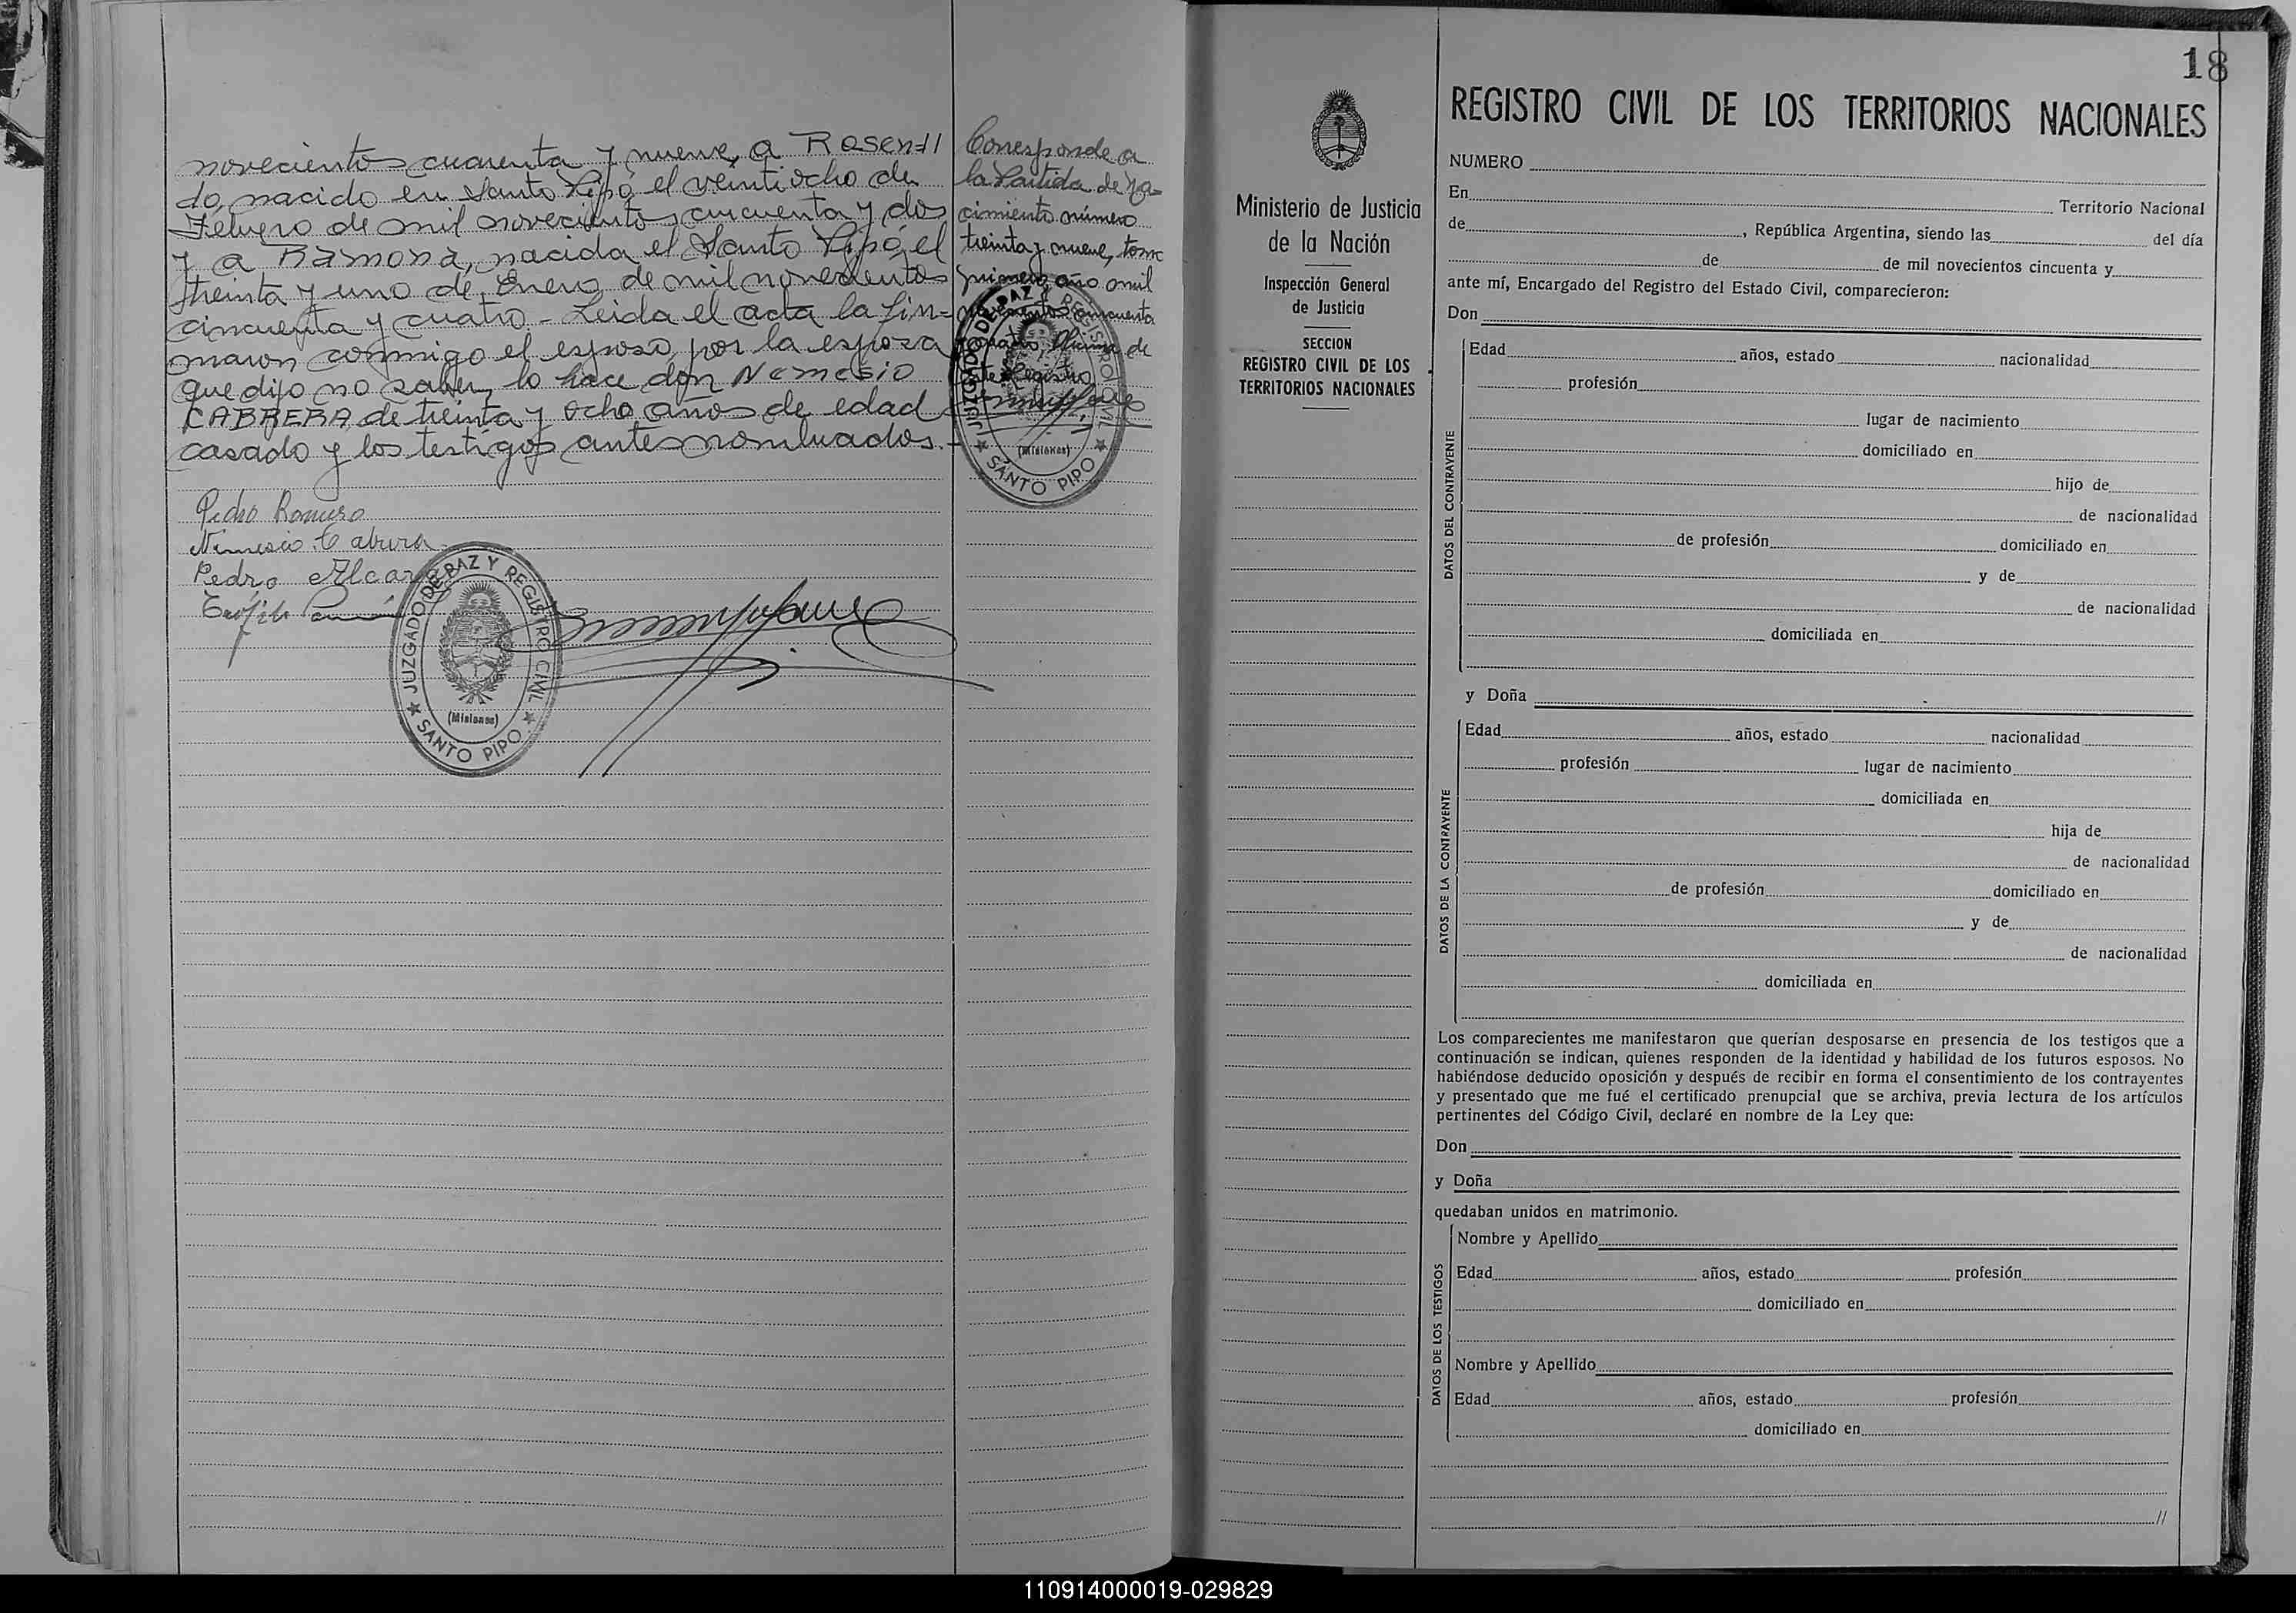 novecientos cuarenta y nueve, a Rosen=//
do, nacido en Santo Pipó el veintiocho de
Febrero de mil novecientos cincuenta y dos
y a Ramona, nacida el Santo Pipó, el
treinta y uno de Enero de mil novecientos
cincuenta y cuatro - Leida el acta la fir=
maron conmigo el esposo, por la esposa
que dijo no saber, lo hace don Nemesio
CABRERA de treinta y ocho años de edad
casado y los testigos antes nombrados.-
Pedro Romero
Nemesio Cabrera
Pedro Alcaraz
JUZGADO DE PAZ Y REGISTRO CIVIL
(Misiones)
SANTO PIPO
Corresponde a
la Partida de Na=
cimiento número
treinta y nueve, tomo
primero, año mil
novecientos cincuenta
y cuatro de
Registro
JUZGADO DE PAZ Y REGISTRO CIVIL
(Misiones)
SANTO PIPO
Ministerio de Justicia
de la Nación
Inspección General
de Justicia
SECCION
REGISTRO CIVIL DE LOS
TERRITORIOS NACIONALES
18
REGISTRO CIVIL DE LOS TERRITORIOS NACIONALES
NUMERO
En Territorio Nacional
de , República Argentina, siendo las del día
de de mil novecientos cincuenta y
ante mí, Encargado del Registro del Estado Civil, comparecieron:
Don
DATOS DEL CONTRAYENTE
Edad años, estado nacionalidad
profesión
lugar de nacimiento
domiciliado en
hijo de
de nacionalidad
de profesión domiciliado en
y de
de nacionalidad
domiciliada en
y Doña
DATOS DE LA CONTRAYENTE
Edad años, estado nacionalidad
profesión lugar de nacimiento
domiciliada en
hija de
de nacionalidad
de profesión domiciliado en
y de
de nacionalidad
domiciliada en
Los comparecientes me manifestaron que querían desposarse en presencia de los testigos que a
continuación se indican, quienes responden de la identidad y habilidad de los futuros esposos. No
habiéndose deducido oposición y después de recibir en forma el consentimiento de los contrayentes
y presentado que me fué el certificado prenupcial que se archiva, previa lectura de los artículos
pertinentes del Código Civil, declaré en nombre de la Ley que:
Don
y Doña
quedaban unidos en matrimonio.
DATOS DE LOS TESTIGOS
Nombre y Apellido
Edad años, estado profesión
domiciliado en
Nombre y Apellido
Edad años, estado profesión
domiciliado en
//
110914000019-029829